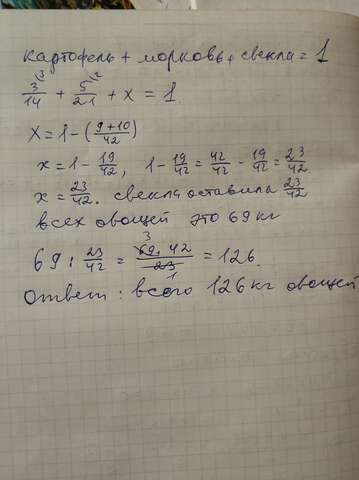 картофель + морковь + свекла = 1
3/14 \3 + 5/21 \2 + x = 1.
X = 1 - (9+10/42)
x = 1 - 19/42, 1 - 19/42 = 42/42 - 19/42 = 23/42.
x = 23/42. свекла оставила 23/42
всех овощей это 69 кг
69 : 23/42 = 69 · 42/23 = 126.
3
1
Ответ: всего 126 кг овощей